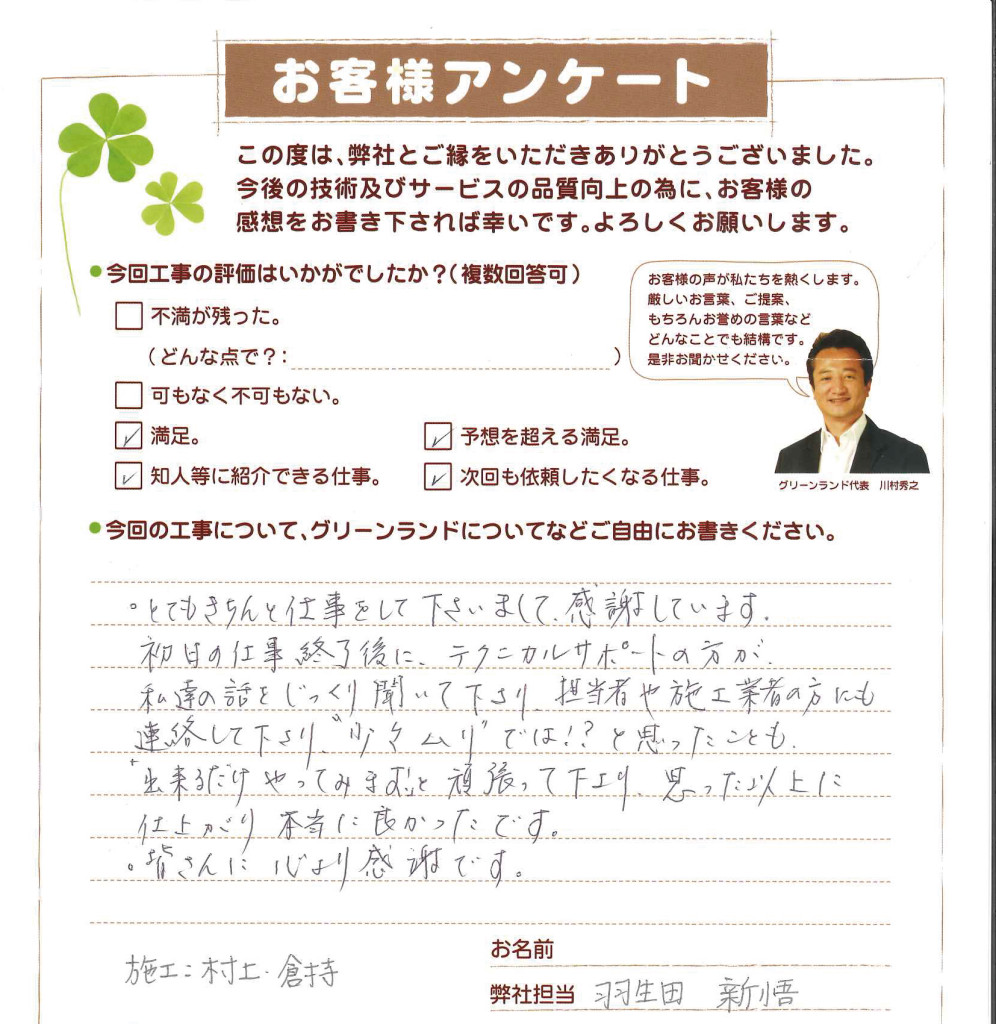 お客様アンケート
この度は、弊社とご縁をいただきありがとうございました。
今後の技術及びサービスの品質向上の為に、お客様の
感想をお書き下されば幸いです。よろしくお願いします。
●今回工事の評価はいかがでしたか？（複数回答可）
不満が残った。
（どんな点で？：　）
可もなく不可もない。
満足。
予想を超える満足。
知人等に紹介できる仕事。
次回も依頼したくなる仕事。
お客様の声が私たちを熱くします。
厳しいお言葉、ご提案、
もちろんお誉めの言葉など
どんなことでも結構です。
是非お聞かせください。
グリーンランド代表　川村秀之
●今回の工事について、グリーンランドについてなどご自由にお書きください。
。とてもきちんと仕事をして下さいまして、感謝しています。
初日の仕事終了後に、テクニカルサポートの方が、
私達の話をじっくり聞いて下さり、担当者や施工業者の方にも
連絡して下さり、“少々ムリ”では!?と思ったことも、
「出来るだけやってみます」と頑張って下さり、思った以上に
仕上がり本当に良かったです。
。皆さんに心より感謝です。
施工：村上・倉持
お名前
弊社担当　羽生田　新悟